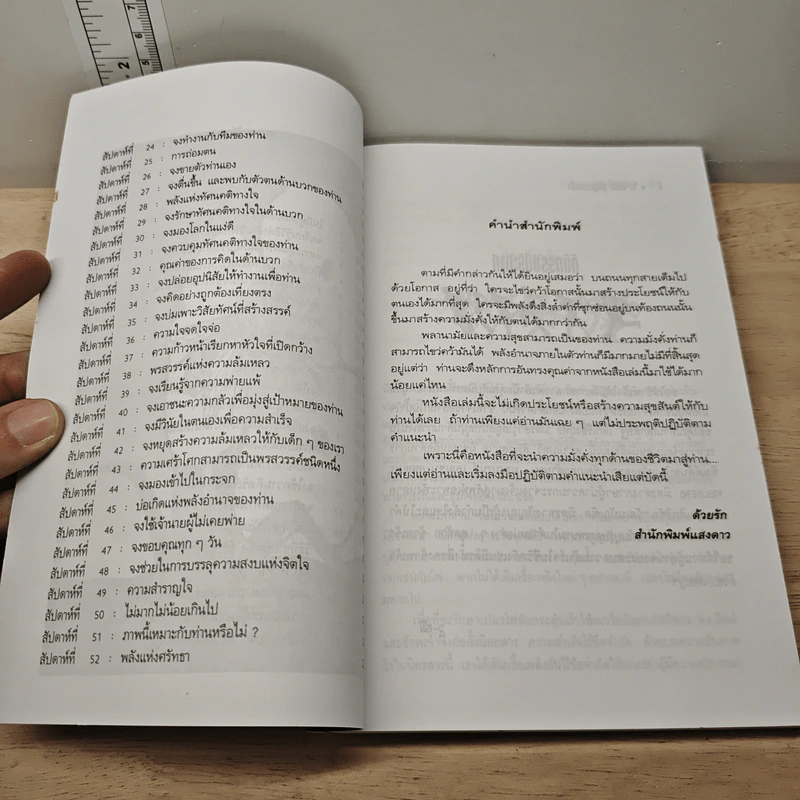 สัปดาห์ที่ 24 : จงทำงานกับทีมของท่าน
สัปดาห์ที่ 25 : การถ่อมตน
สัปดาห์ที่ 26 : จงขายตัวท่านเอง
สัปดาห์ที่ 27 : จงตื่นขึ้น และพบกับตัวตนด้านบวกของท่าน
สัปดาห์ที่ 28 : พลังแห่งทัศนคติทางใจ
สัปดาห์ที่ 29 : จงรักษาทัศนคติทางใจในด้านบวก
สัปดาห์ที่ 30 : จงมองโลกในแง่ดี
สัปดาห์ที่ 31 : จงควบคุมทัศนคติทางใจของท่าน
สัปดาห์ที่ 32 : คุณค่าของการคิดในด้านบวก
สัปดาห์ที่ 33 : จงปล่อยอุปนิสัยให้ทำงานเพื่อท่าน
สัปดาห์ที่ 34 : จงคิดอย่างถูกต้องเที่ยงตรง
สัปดาห์ที่ 35 : จงบ่มเพาะวิสัยทัศน์ที่สร้างสรรค์
สัปดาห์ที่ 36 : ความใจจดใจจ่อ
สัปดาห์ที่ 37 : ความก้าวหน้าเรียกหาหัวใจที่เปิดกว้าง
สัปดาห์ที่ 38 : พรสวรรค์แห่งความล้มเหลว
สัปดาห์ที่ 39 : จงเรียนรู้จากความพ่ายแพ้
สัปดาห์ที่ 40 : จงเอาชนะความกลัวเพื่อมุ่งสู่เป้าหมายของท่าน
สัปดาห์ที่ 41 : จงมีวินัยในตนเองเพื่อความสำเร็จ
สัปดาห์ที่ 42 : จงหยุดสร้างความล้มเหลวให้กับเด็ก ๆ ของเรา
สัปดาห์ที่ 43 : ความเศร้าโศกสามารถเป็นพรสวรรค์ชนิดหนึ่ง
สัปดาห์ที่ 44 : จงมองเข้าไปในกระจก
สัปดาห์ที่ 45 : บ่อเกิดแห่งพลังอำนาจของท่าน
สัปดาห์ที่ 46 : จงใช้เจ้านายผู้ไม่เคยพ่าย
สัปดาห์ที่ 47 : จงขอบคุณทุก ๆ วัน
สัปดาห์ที่ 48 : จงช่วยในการบรรลุความสงบแห่งจิตใจ
สัปดาห์ที่ 49 : ความสำราญใจ
สัปดาห์ที่ 50 : ไม่มากไม่น้อยเกินไป
สัปดาห์ที่ 51 : ภาพนี้เหมาะกับท่านหรือไม่ ?
สัปดาห์ที่ 52 : พลังแห่งศรัทธา
คำนำสำนักพิมพ์
ตามที่มีคำกล่าวกันให้ได้ยินอยู่เสมอว่า บนถนนทุกสายเต็มไป
ด้วยโอกาส อยู่ที่ว่า ใครจะไขว่คว้าโอกาสนั้นมาสร้างประโยชน์ให้กับ
ตนเองได้มากที่สุด ใครจะมีพลังดึงสิ่งล้ำค่าที่ซุกซ่อนอยู่บนท้องถนนนั้น
ขึ้นมาสร้างความมั่งคั่งให้กับตนได้มากกว่ากัน
พลานามัยและความสุขสามารถเป็นของท่าน ความมั่งคั่งท่านก็
สามารถไขว่คว้ามันได้ พลังอำนาจภายในตัวท่านก็มีมากมายไม่มีที่สิ้นสุด
อยู่แต่ว่า ท่านจะดึงหลักการอันทรงคุณค่าจากหนังสือเล่มนี้มาใช้ได้มาก
น้อยแค่ไหน
หนังสือเล่มนี้จะไม่เกิดประโยชน์หรือสร้างความสุขสันต์ให้กับ
ท่านได้เลย ถ้าท่านเพียงแค่อ่านมันเฉย ๆ แต่ไม่ประพฤติปฏิบัติตาม
คำแนะนำ
เพราะนี่คือหนังสือที่จะนำความมั่งคั่งทุกด้านของชีวิตมาสู่ท่าน...
เพียงแต่อ่านและเริ่มลงมือปฏิบัติตามคำแนะนำเสียแต่บัดนี้
ด้วยรัก
สำนักพิมพ์แสงดาว